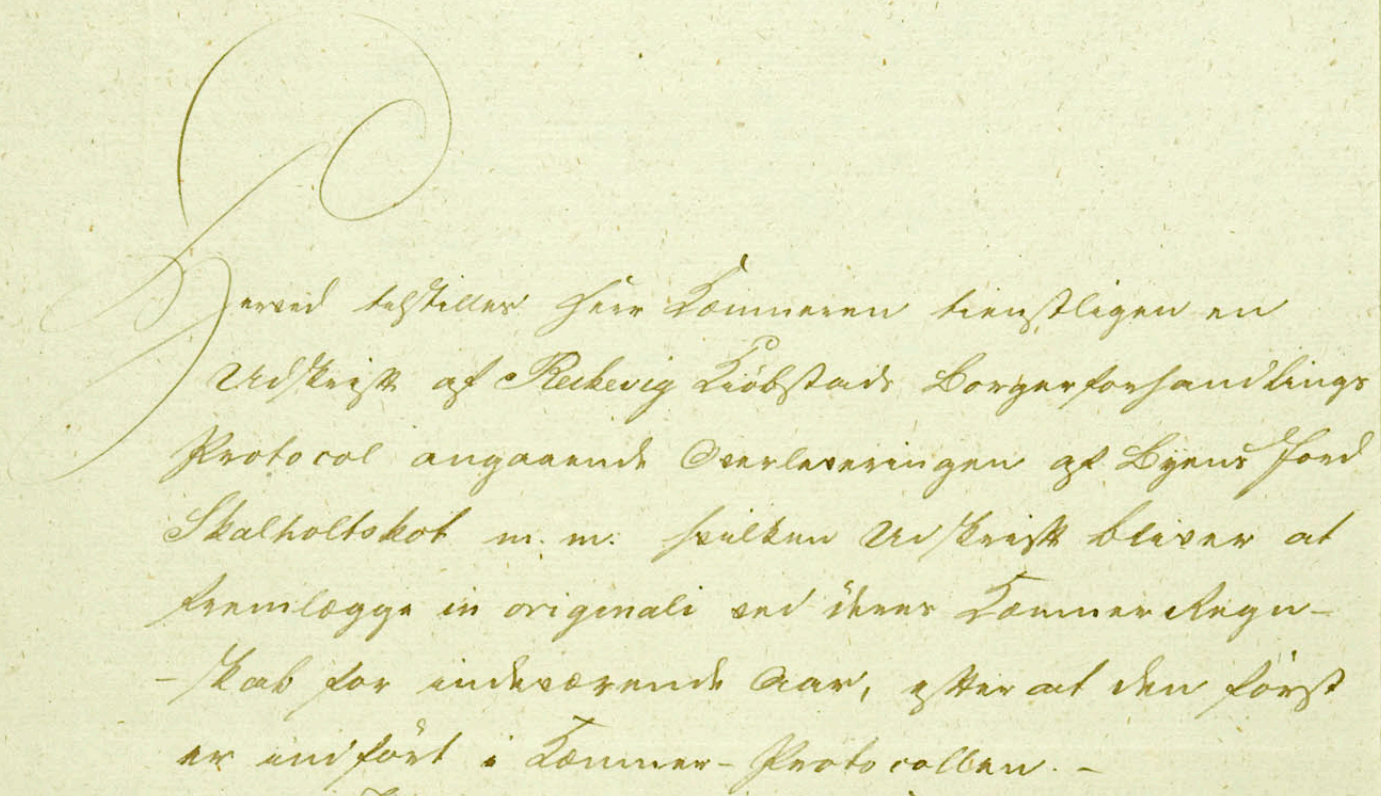 Herved tilstilles Herr Kæmneren tienstligen en
Udskrift af Reikevig Kiöbstads Borgerforhandlings
Protocol angaaende Overleveringen af Byens Jord
Skalholtskot m. m. hvilken Udskrift bliver at
fremlægge in originali ved deres Kæmner Regn-
-skab for indeværende Aar, efter at den först
er indfört i Kæmner-Protocollen. -